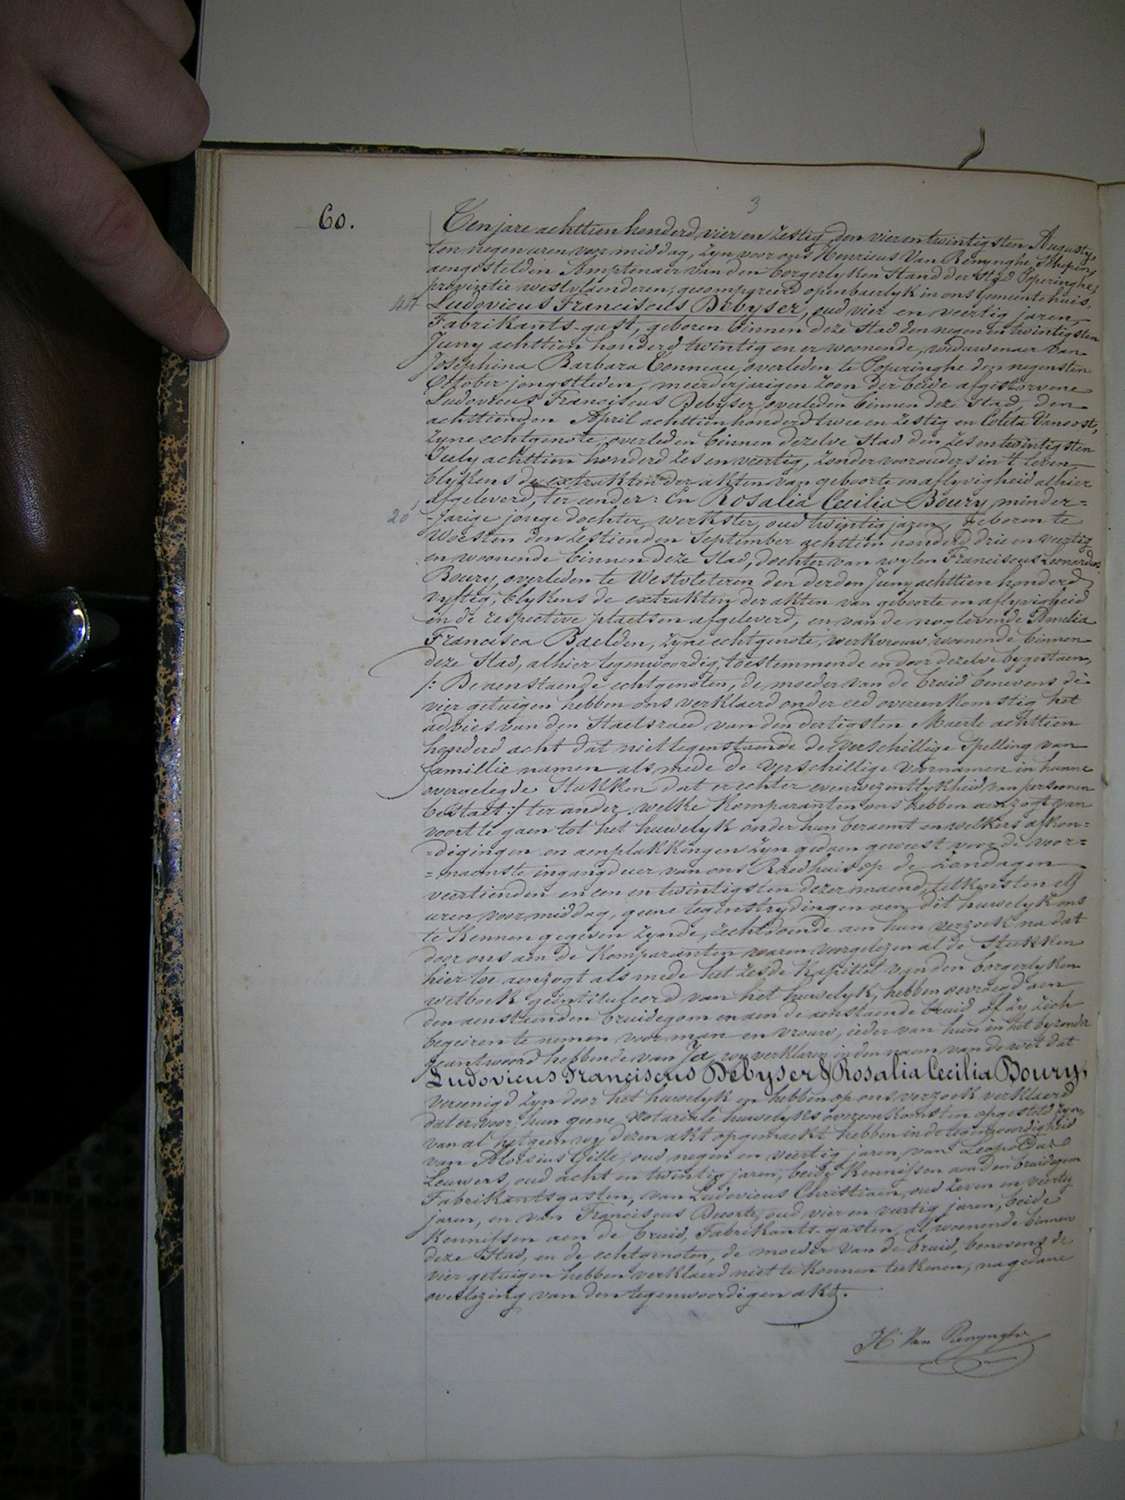 3
60.
Ten jare achttien honderd vier en zestig den vierentwintigsten Augusty,
ten negen uren voor middag, zyn voor ons Henricus Van Renynghe, Schepen,
aengestelden Amptenaer van den borgerlyken Stand der Stad Poperinghe,
provintie westvlaenderen, gecompareerd openbaerlyk in ons Gemeentehuis
44 Ludovicus Franciscus Debyser, oud vier en veertig jaren,
Fabrikants-gast, geboren binnen deze stad den negen en twintigsten
Juny achttien honderd twintig en er woonende, weduwenaer van
Josephina Barbara Tonneau, overleden te Poperinghe den negensten
October jongstleden, meerderjarigen zoon der beide afgestorvene
Ludovicus Franciscus Debyser, overleden binnen deze stad, den
achttienden April achttien honderd twee en zestig en Coleta Vanoost,
zyne echtgenote, overleden binnen dezelve Stad den zes en twintigsten
July achttien honderd zes en veertig, zonder voorouders in 't leven
blykens de extrakten der akten van geboorte en aflyvigheid alhier
afgeleverd, ter eender: En Rosalia Cecilia Boury, minder=
20 =jarige jonge dochter, werkster, oud twintig jaren, geboren te
Woesten den zestienden September achttien honderd drie en veertig
en woonende binnen deze Stad, dochter van wylen Franciscus Leonardus
Boury, overleden te Westvleteren den derden Juny achttien honderd
vyftig, blykens de extrakten der akten van geboorte en aflyvigheid
in de respective plaetsen afgeleverd, en van de noglevende Amelia
Francisca Baelden, zyne echtgenote, werkvrouw, woonende binnen
deze Stad, alhier tegenwoordig, toestemmende en door dezelve bygestaen,
/: De aenstaende echtgenoten, de moeder van de bruid benevens de
vier getuigen hebben ons verklaerd onder eed overeenkomstig het
advies van den Staetsraed van den dertigsten Maerte achttien
honderd acht dat niettegenstaende de verschillige Spelling van
famillie namen als mede de verschillige voornamen in hunne
overgelegde Stukken dat er echter eenwezentlykheid van persoonen
bestaet :/ ter ander, welke Komparanten ons hebben aenzogt van
voort te gaen tot het huwelyk onder hun beraemt en welkers afkon=
=digingen en aenplakkingen zyn gedaen geweest voor de voor=
=naemste ingangdeur van ons Raedhuis op de zondagen
veertienden en een en twintigsten dezer maend, telkens ten elf
uren voor middag, geene tegenstrydingen aen dit huwelyk ons
te Kennen gegeven zynde, rechtdoende aen hun verzoek na dat
door ons aen de Komparanten waren voorgelezen al de Stukken
hier toe aenzogt als mede het zesde Kapittel van den borgerlyken
wetboek geintituleerd van het huwelyk, hebben gevraegd aen
den aenstaenden bruidegom en aen de aenstaende bruid of zy zich
begeiren te nemen voor man en vrouw, ieder van hun in het byzonder
geantwoord hebbende van Ja, wy verklaren in den naem van de wet dat
Ludovicus Franciscus Debyser & Rosalia Cecilia Boury,
vereenigd zyn door het huwelyk en hebben op ons verzoek verklaerd
dat er voor hun geene notariele huwelyks overeenkomsten opgesteld zyn,
van al het geen wy dezen akt opgemaekt hebben in de tegenwoordigheid
van Aloisius Gille, oud negen en veertig jaren, van Leopoldus
Leuwers, oud acht en twintig jaren, beide Kennissen aen den bruidegom
Fabrikantsgasten, van Ludovicus Christiaen, oud zeven en veertig
jaren, en van Franciscus Decorte, oud vier en veertig jaren, beide
Kennissen aen de bruid, Fabrikants-gasten, al woonende binnen
deze Stad, en de echtgenoten, de moeder van de bruid, benevens de
vier getuigen hebben verklaerd niet te Konnen teekenen, na gedane
overlezing van den tegenwoordigen akt.
H Van Renynghe